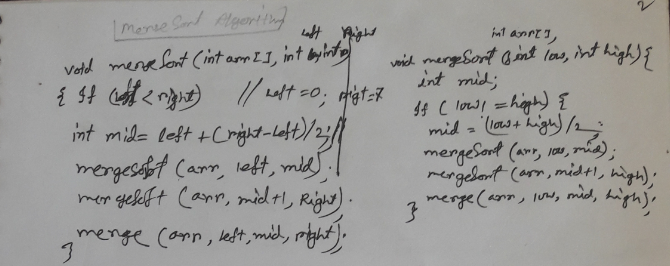 2
MergeSort Algorithm
left Right
void mergeSort (int arr[], int
{ If (left < right) // left=0; right=7
int mid= left + (right-left)/2; //
mergeSort (arr, left, mid);
mergeSort (arr, mid+1, Right);
merge (arr, left, mid, right);
}
int arr[],
void mergeSort (int low, int high) {
int mid;
If (low! = high) {
mid = (low + high)/2;
mergeSort (arr, low, mid);
mergeSort (arr, mid+1, high);
merge (arr, low, mid, high);
}